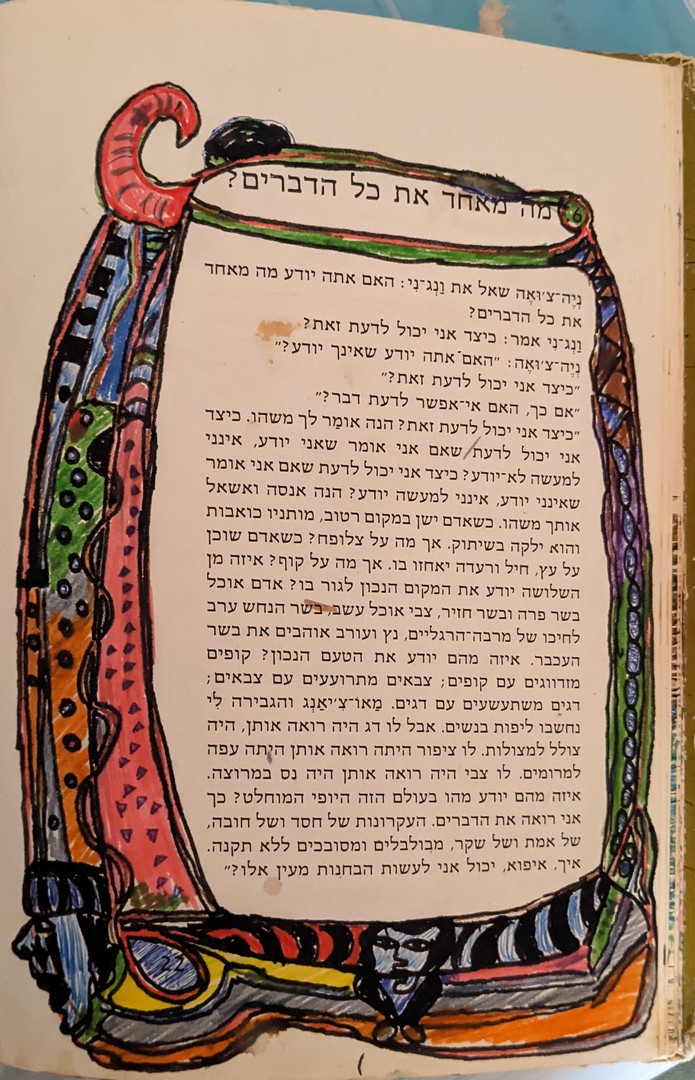 מה מאחד את כל הדברים?
6
נְיֶה־צ׳וּאֶה שאל את וַנְג־נִי: האם אתה יודע מה מאחד
את כל הדברים?
וַנְג־נִי אמר: כיצד אני יכול לדעת זאת?
נְיֶה־צ׳וּאֶה: ״האם אתה יודע שאינך יודע?״
״כיצד אני יכול לדעת זאת?״
״אם כך, האם אי־אפשר לדעת דבר?״
״כיצד אני יכול לדעת זאת? הנה אומַר לך משהו. כיצד
אני יכול לדעת שאם אני אומר שאני יודע, אינני
למעשה לא־יודע? כיצד אני יכול לדעת שאם אני אומר
שאינני יודע, אינני למעשה יודע? הנה אנסה ואשאל
אותך משהו. כשאדם ישן במקום רטוב, מותניו כואבות
והוא ילקה בשיתוק. אך מה על צלופח? כשאדם שוכן
על עץ, חיל ורעדה יאחזו בו. אך מה על קוף? איזה מן
השלושה יודע את המקום הנכון לגור בו? אדם אוכל
בשר פרה ובשר חזיר, צבי אוכל עשב, בשר הנחש ערב
לחיכו של מרבה־הרגליים, נץ ועורב אוהבים את בשר
העכבר. איזה מהם יודע את הטעם הנכון? קופים
מזדווגים עם קופים; צבאים מתרועעים עם צבאים;
דגים משתעשעים עם דגים. מַאוֹ־צִ׳יאַנְג והגבירה לִי
נחשבו ליפות בנשים. אבל לו דג היה רואה אותן, היה
צולל למצולות. לו ציפור היתה רואה אותן היתה עפה
למרומים. לו צבי היה רואה אותן היה נס במרוצה.
איזה מהם יודע מהו בעולם הזה היופי המוחלט? כך
אני רואה את הדברים. העקרונות של חסד ושל חובה,
של אמת ושל שקר, מבולבלים ומסובכים ללא תקנה.
איך, איפוא, יכול אני לעשות הבחנות מעין אלו?״
22